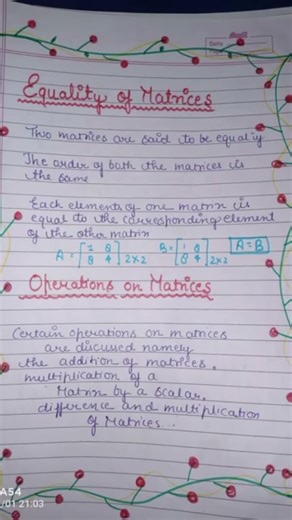 Date
Equality of Matrices
Two matrices are said to be equal if
The order of both the matrices is
the same
Each elements of one matrix is
equal to the corresponding element
of the other matrix
A = [1 8 8 4] 2×2 B = [1 8 8 4] 2×2 A = B
Operations on Matrices
Certain operations on matrices
are discused namely
the addition of matrices.
multiplication of a
Matrix by a scalar.
difference and multiplication
of Matrices...
A54
/01 21:03